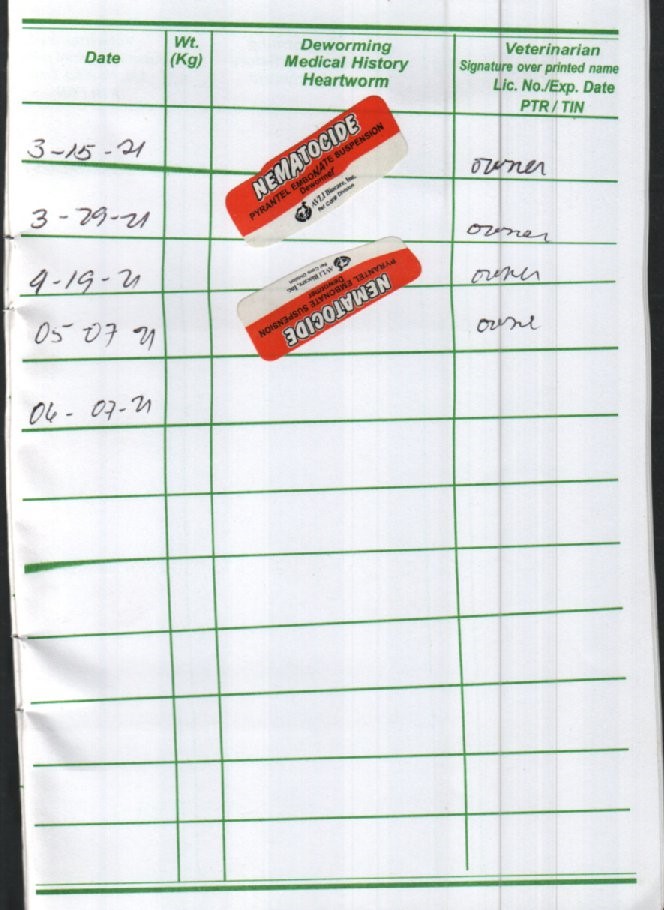 Date
Wt.
(Kg)
Deworming
Medical History
Heartworm
Veterinarian
Signature over printed name
Lic. No./Exp. Date
PTR / TIN
3-15-21
NEMATOCIDE
PYRANTEL EMBONATE SUSPENSION
Dewormer
for Good Dewormer
owner
3-29-21
owner
4-19-21
owner
05 07 21
NEMATOCIDE
PYRANTEL EMBONATE SUSPENSION
Dewormer
owne
06-07-21